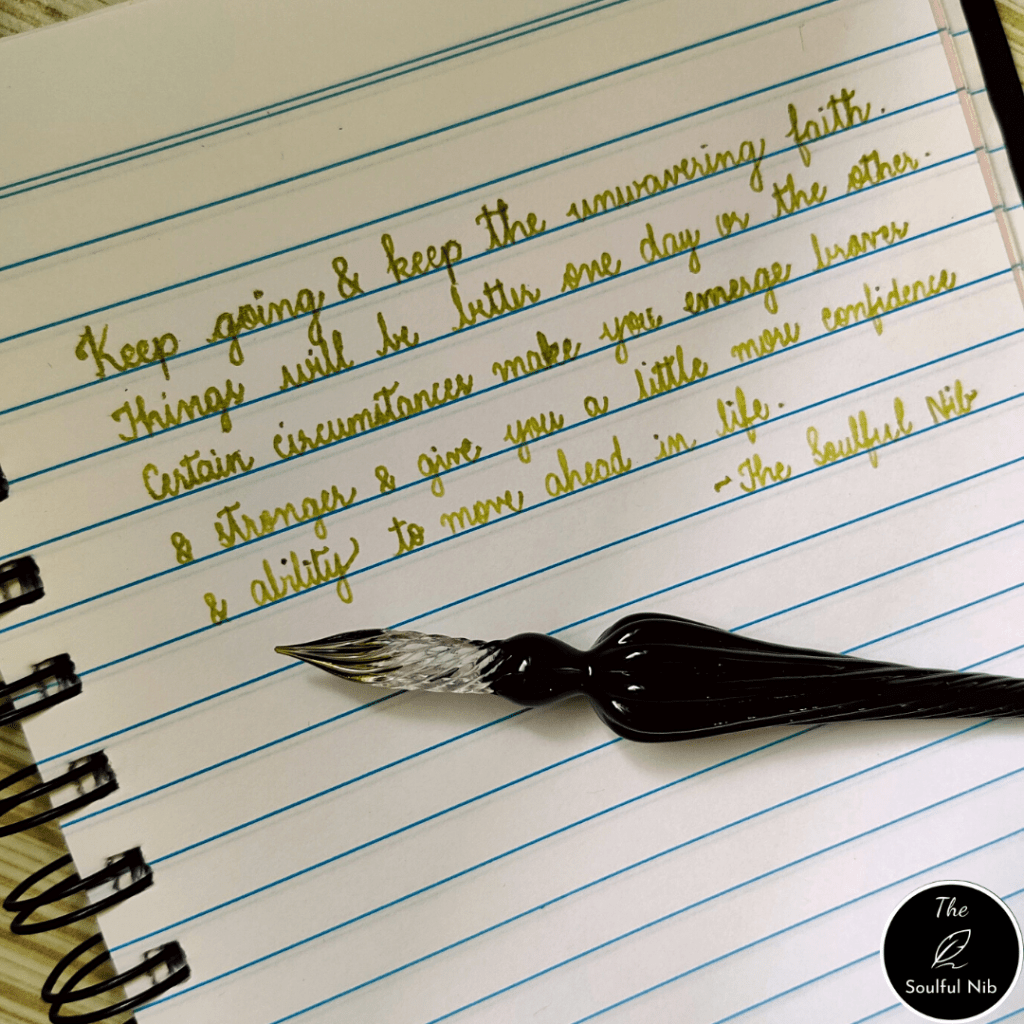 Keep going & keep the unwavering faith.
Things will be better one day or the other.
Certain circumstances make you emerge braver
& stronger & give you a little more confidence
& ability to move ahead in life.
~The Soulful Nib
The
Soulful Nib